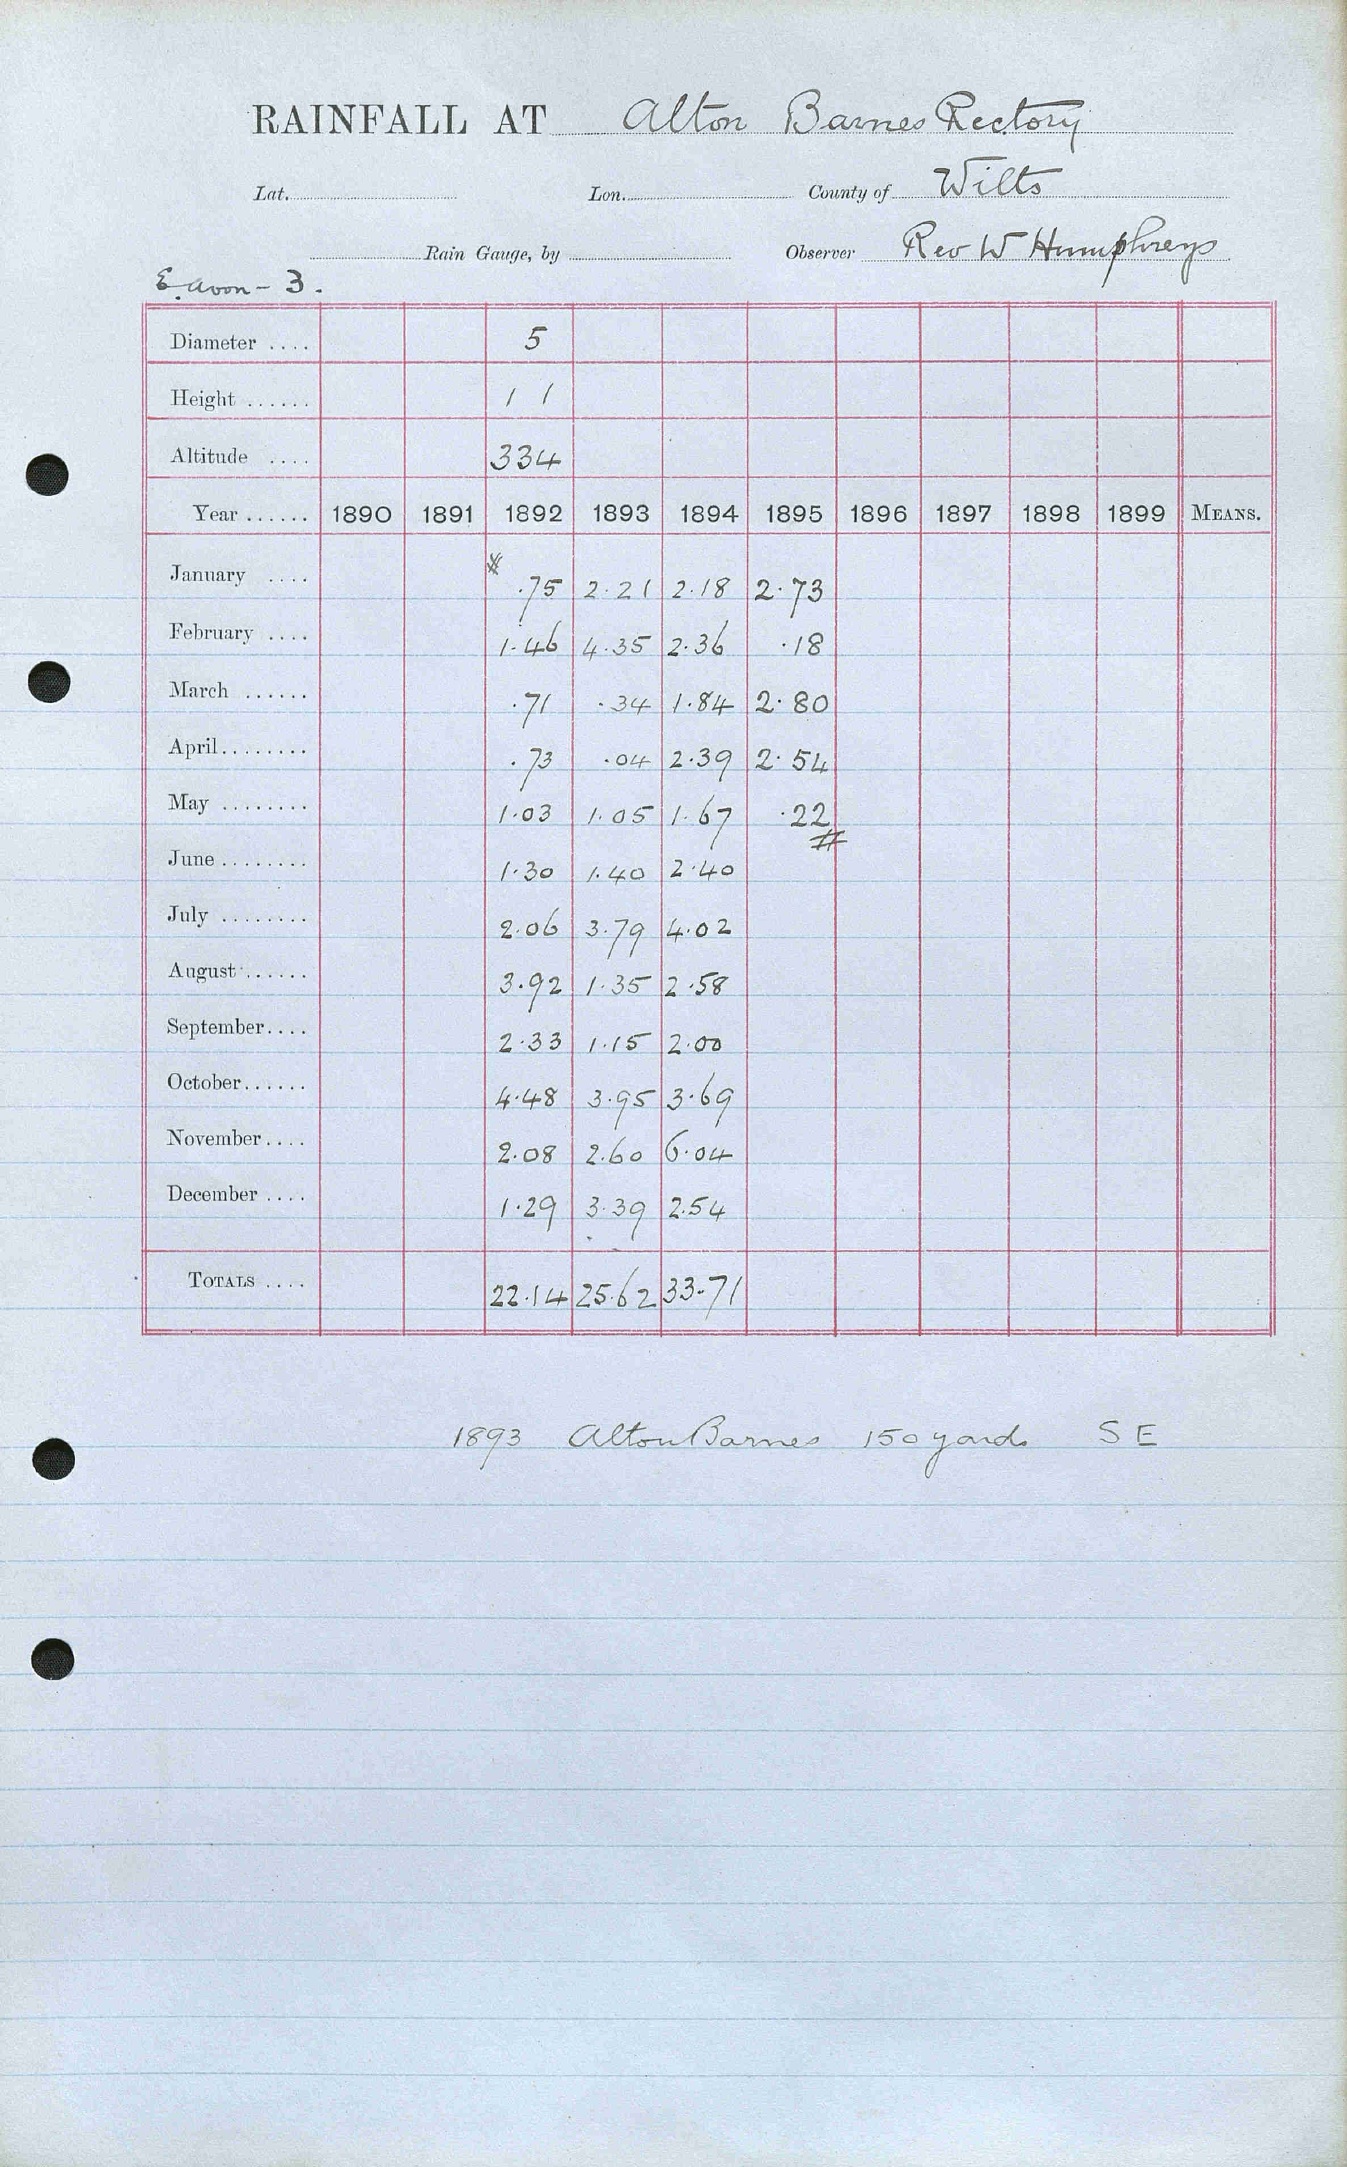 RAINFALL AT Alton Barnes Rectory
Lat. Lon. County of Wilts
Rain Gauge, by Observer Rev W Humphreys
E. Avon - 3.
Diameter .... 5
Height ...... 1 1
Altitude .... 334
Year ...... 1890 1891 1892 1893 1894 1895 1896 1897 1898 1899 MEANS.
January .... .75 2.21 2.18 2.73
February .... 1.46 4.35 2.36 .18
March ...... .71 .34 1.84 2.80
April ........ .73 .04 2.39 2.54
May ........ 1.03 1.05 1.67 .22
June ........ 1.30 1.40 2.40
July ........ 2.06 3.79 4.02
August ...... 3.92 1.35 2.58
September .... 2.33 1.15 2.00
October ...... 4.48 3.95 3.69
November .... 2.08 2.60 6.04
December .... 1.29 3.39 2.54
TOTALS .... 22.14 25.62 33.71
1893 Alton Barnes 150 yards S E